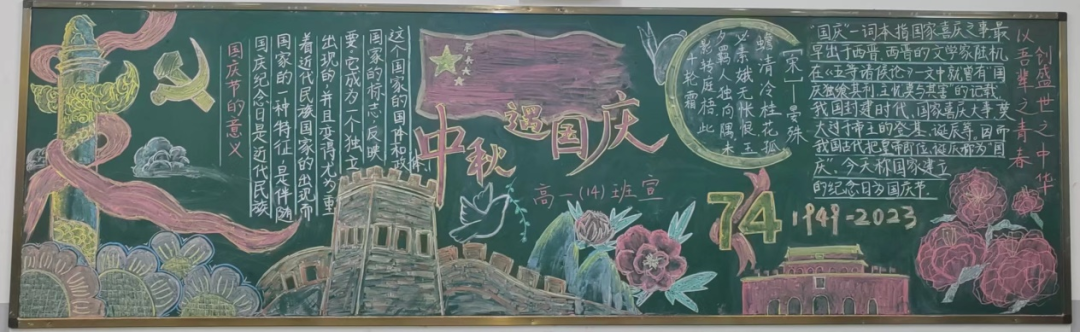 国庆节的意义
国庆纪念日是近代民族
国家的一种特征，是伴随
着近代民族国家的出现而
出现的，并且变得尤为重
要。它成为一个独立
国家的标志，反映
这个国家的国体和政体
中秋遇国庆
高一(14)班宣
十轮霜
影转庭梧，此
夕羁人独向隅。未
必素娥无怅恨，玉
蟾清冷桂花孤
[宋]——晏殊
74
1949-2023
“国庆”一词本指国家喜庆之事最
早出于西晋。西晋的文学家陆机
在《五等诸侯论》一文中就曾有“国
庆独飨其利，主忧莫与其害”的记载
我国封建时代，国家喜庆大事，莫
大过于帝王的登基、诞辰等，因而
我国古代把皇帝即位、诞辰称为“国
庆”，今天称国家建立
的纪念日为国庆节。
以吾辈之青春
创盛世之中华